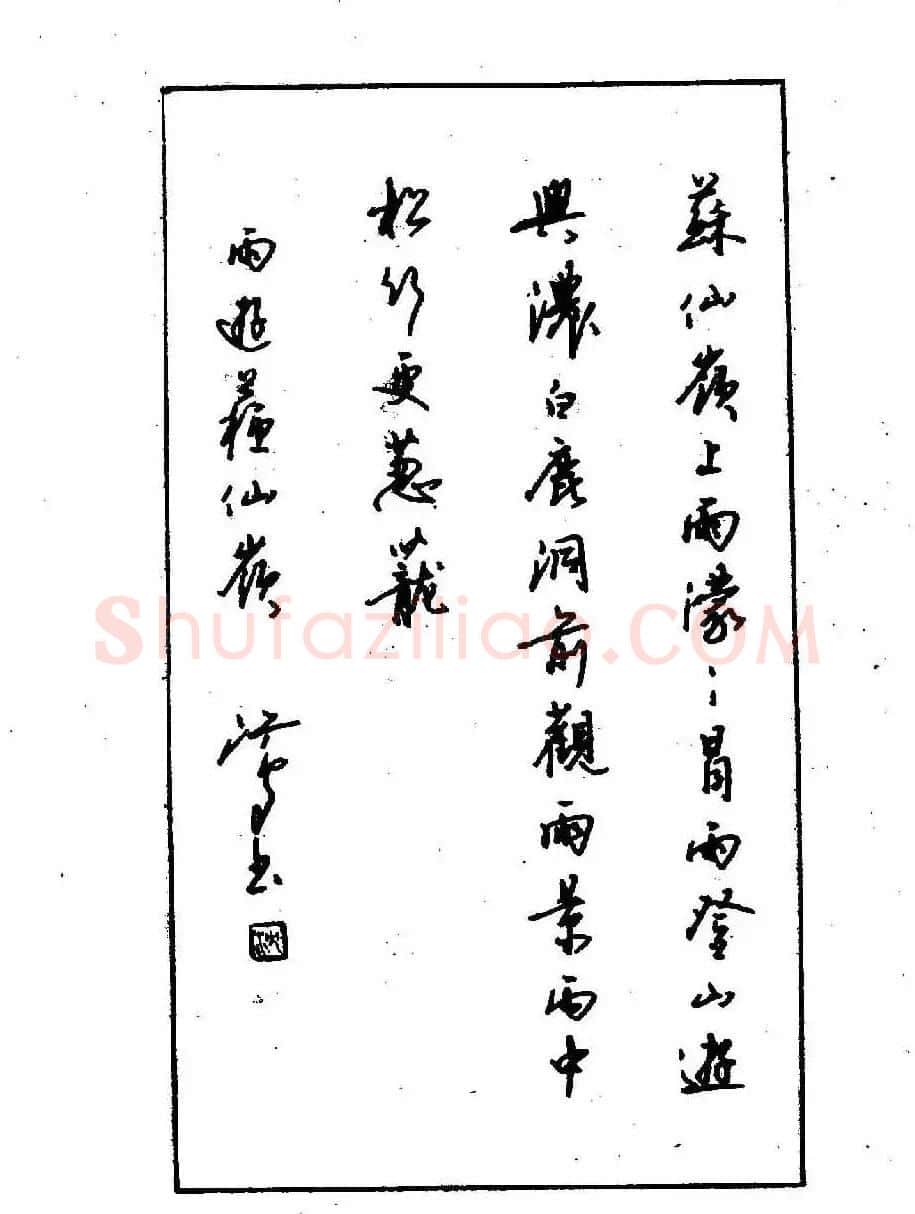 蘇仙嶺上雨濛〻冒雨登山遊
興濃白鹿洞前觀雨景雨中
松竹更蔥蘢
雨遊蘇仙嶺
书
Shufaziliao.COM